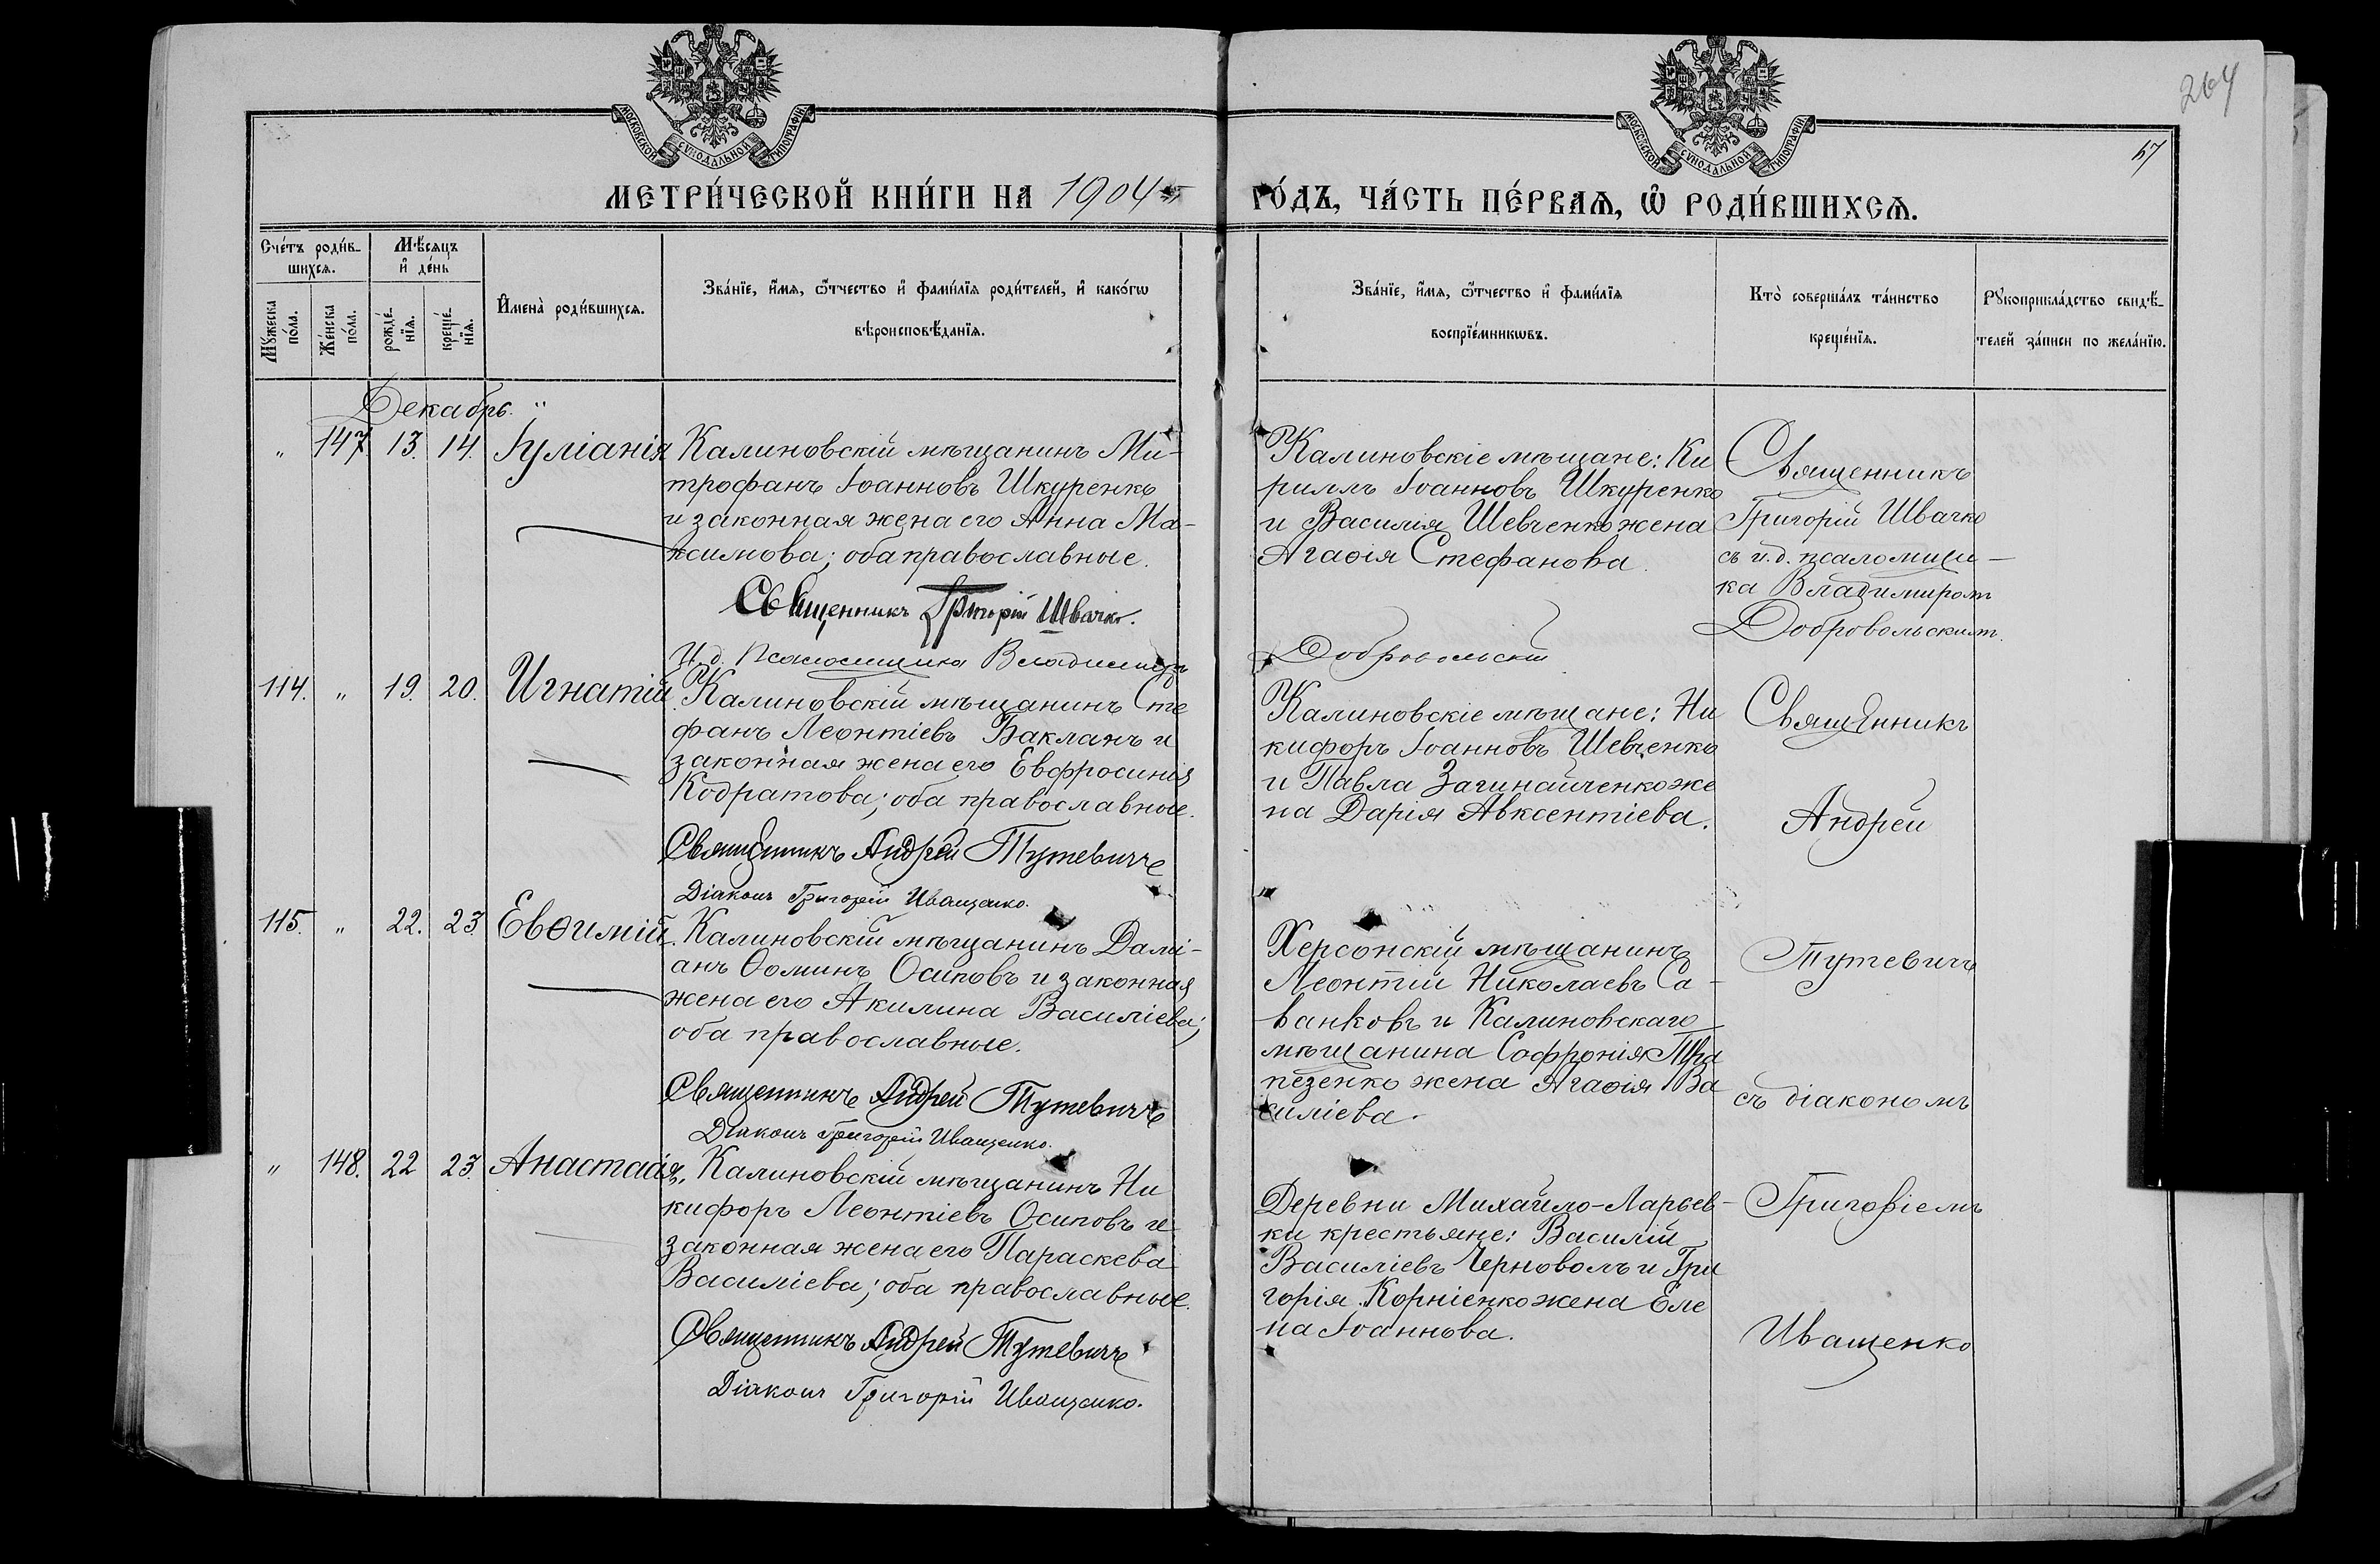 264
57
МОСКОВСКОЙ СѴНОДАЛЬНОЙ ТИПОГРАФІИ
МОСКОВСКОЙ СѴНОДАЛЬНОЙ ТИПОГРАФІИ
МЕТРИ́ЧЕСКОЙ КНИ́ГИ НА 1904 й ГО́ДЪ, ЧА́СТЬ ПЕ́РВАѦ, Ѡ҆ РОДИ́ВШИХСѦ.
Сче́тъ роди́в-
шихсѧ.
Мꙋ́жеска по́ла.
Же́нска по́ла.
Мѣ́сѧцъ
и҆ де́нь
рожде́-
нїѧ.
креще́-
нїѧ.
И҆мена̀ роди́вшихсѧ.
Зва́нїе, и҆́мѧ, ѻ҆́тчество и҆ фами́лїѧ роди́телей, и҆ како́гѡ
вѣроисповѣ́данїѧ.
Зва́нїе, и҆́мѧ, ѻ҆́тчество и҆ фами́лїѧ
воспрїе́мникѡвъ.
Кто̀ соверша́лъ та́инство
креще́нїѧ.
Рꙋкоприкла́дство свидѣ́-
телей за́писи по жела́нїю.
Декабрь. "
" 147. 13. 14. Іуліанія
Калиновскій мѣщанинъ Ми-
трофанъ Іоанновъ Шкуренко
и законная жена его Анна Ма-
ксимова; оба православные.
Священникъ Григорій Швачко.
И. д. Псаломщика Владимиръ Добровольскій
Калиновскіе мѣщане: Ки
риллъ Іоанновъ Шкуренко
и Василія Шевченко жена
Агаѳія Стефанова.
Священникъ
Григорій Швачко
съ и. д. псаломщи-
ка Владимиромъ
Добровольскимъ.
114. " 19. 20. Игнатій
Калиновскій мѣщанинъ Сте
фанъ Леонтіевъ Бакланъ и
законная жена его Евфросинія
Кодратова; оба православные.
Священникъ Андрей Тутевичъ
Діаконъ Григорій Иващенко.
Калиновскіе мѣщане: Ни
кифоръ Іоанновъ Шевченко
и Павла Загинайченко же
на Дарія Авксентіева.
Священникъ
Андрей
115. " 22. 23. Евѳимій.
Калиновскій мѣщанинъ Дамі-
анъ Ѳоминъ Осиповъ и законная
жена его Акилина Василіева;
оба православные.
Священникъ Андрей Тутевичъ
Діаконъ Григорій Иващенко.
Херсонскій мѣщанинъ
Леонтій Николаевъ Са-
ванковъ и Калиновскаго
мѣщанина Софронія Тра
пезенко жена Агаѳія Ва
силіева.
Тутевичъ
съ діакономъ
" 148. 22 23. Анастасія.
Калиновскій мѣщанинъ Ни
кифоръ Леонтіевъ Осиповъ и
законная жена его Параскева
Василіева; оба православные.
Священникъ Андрей Тутевичъ
Діаконъ Григорій Иващенко.
Деревни Михайло-Ларьев-
ки крестьяне: Василій
Василіевъ Черноволъ и Гри
горія Корніенко жена Еле
на Іоаннова.
Григоріемъ
Иващенко